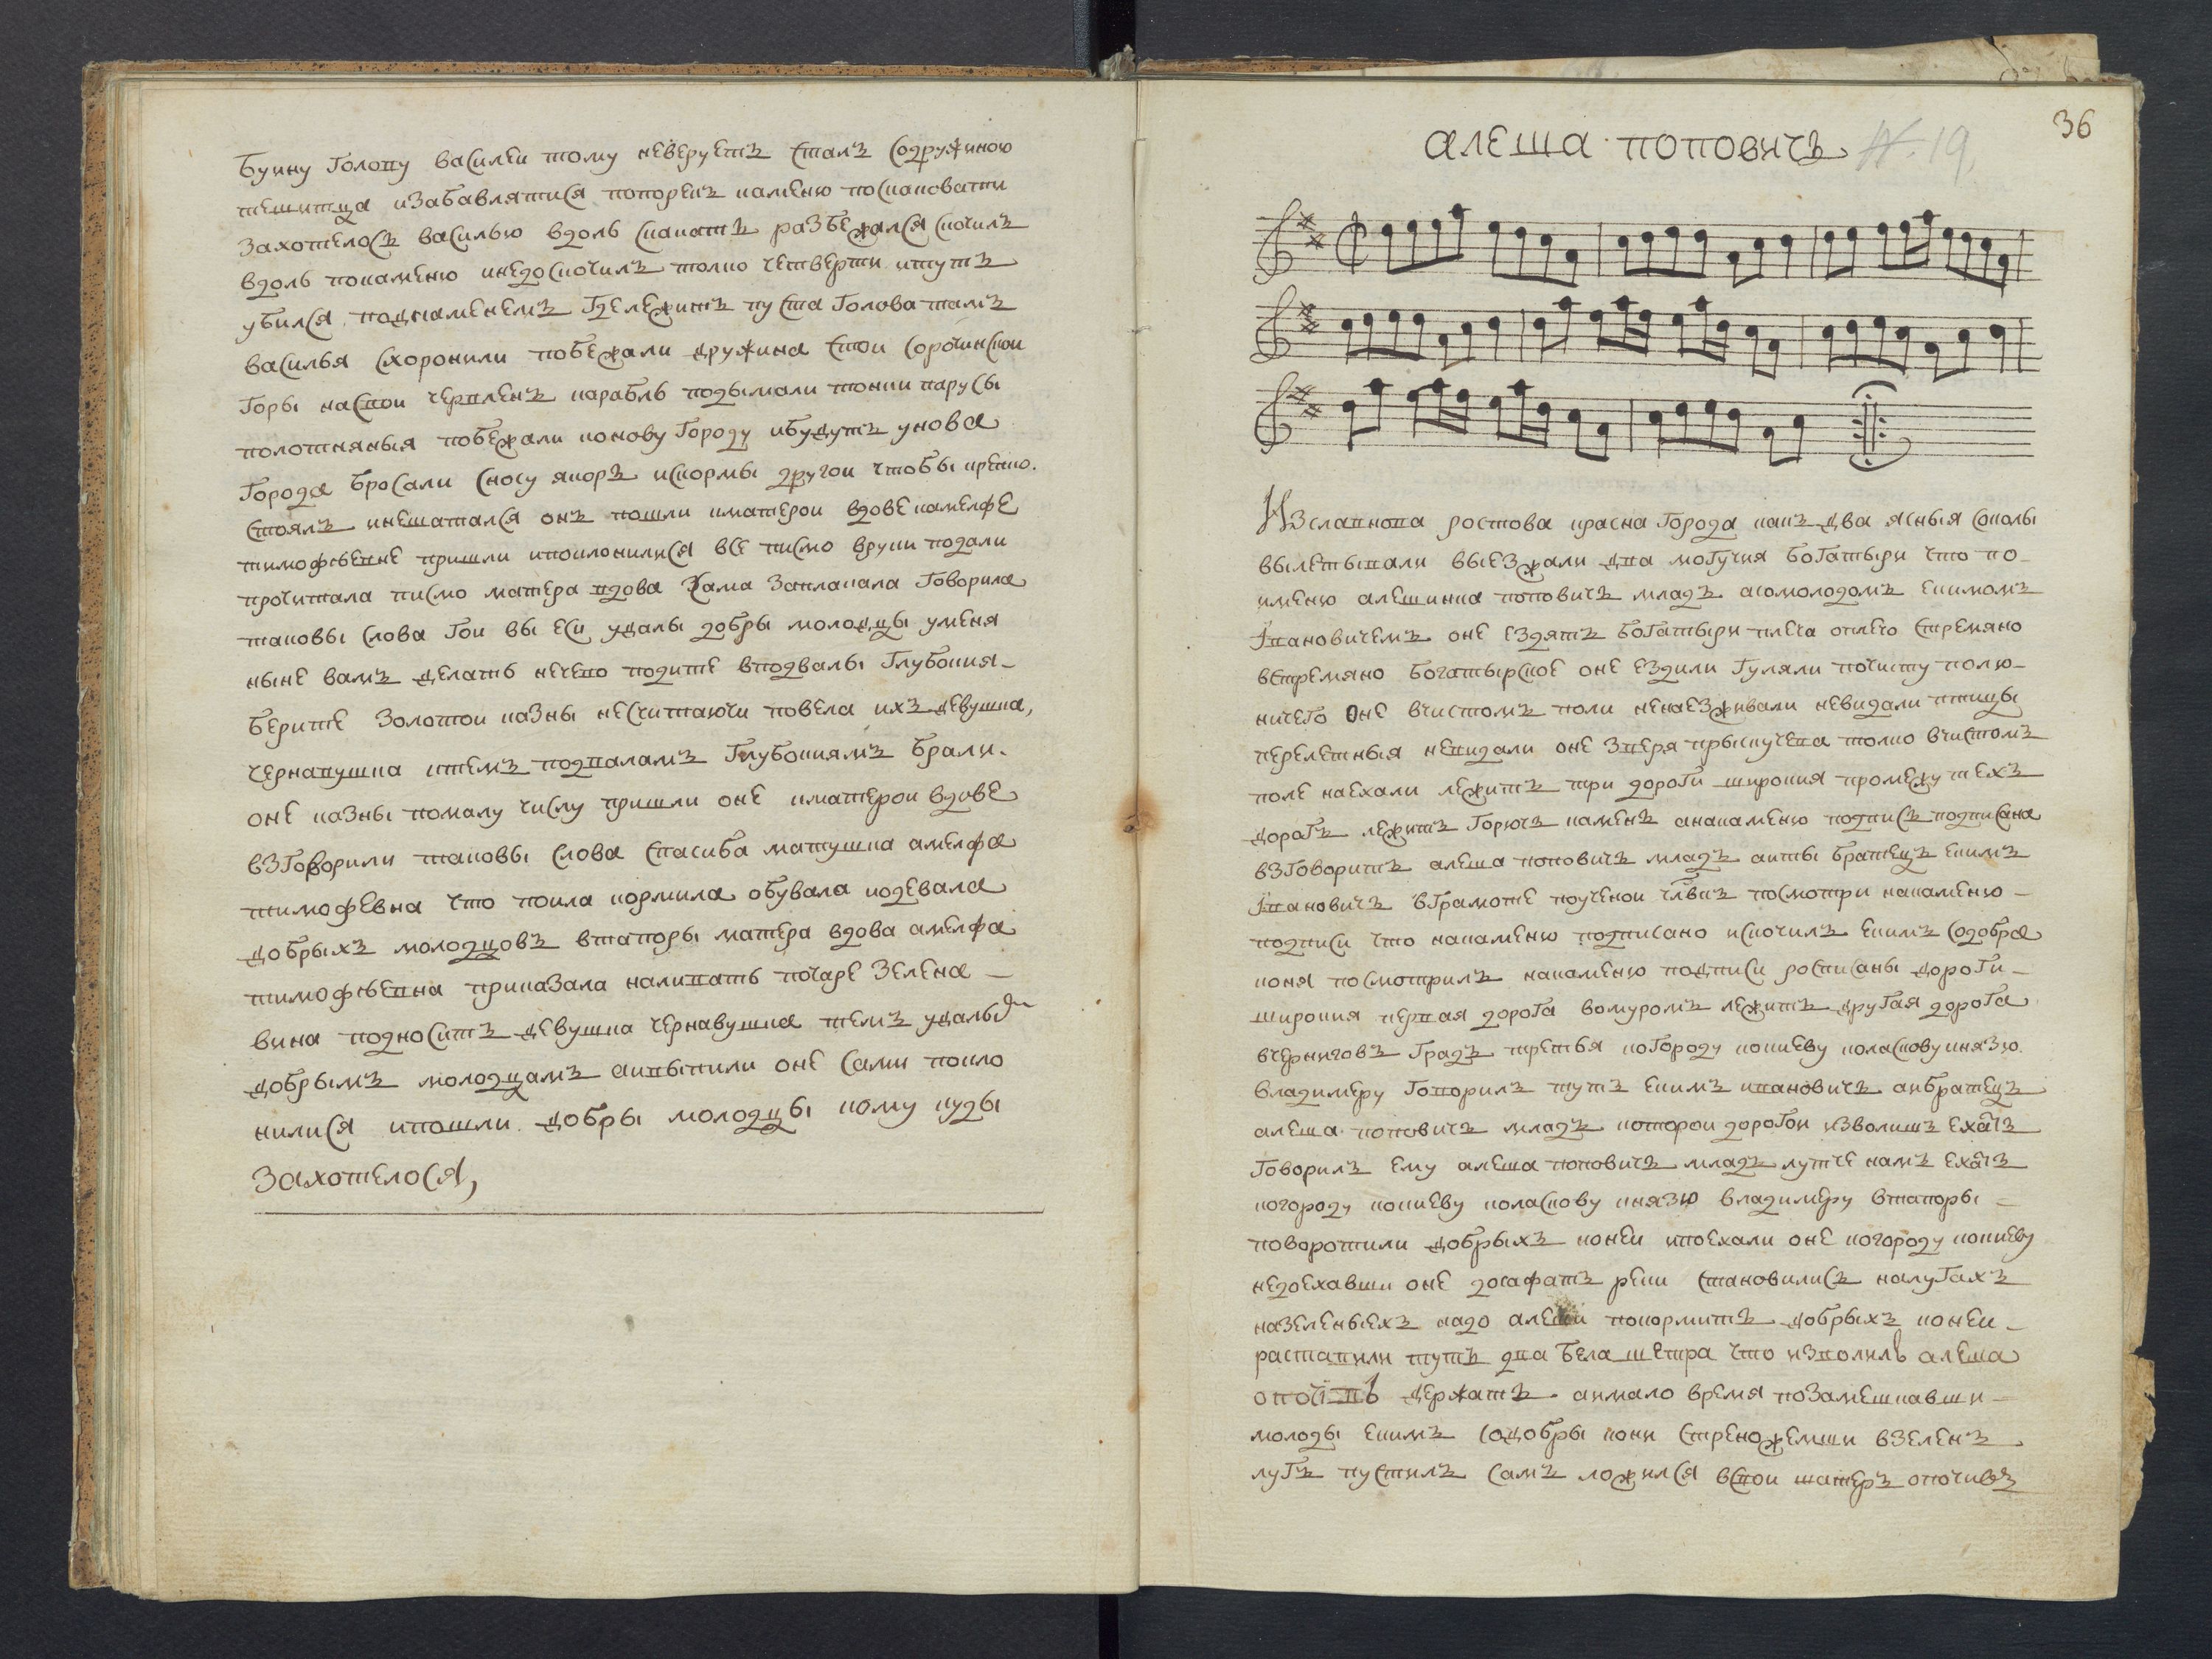 буину голову василеи тому неверуетъ сталъ содружиною
тешитца изабавлятися попорекъ каменю поскаковати
захотелосъ василью вдоль скакатъ разбежался скочилъ
вдоль покаменю инедоскочилъ толко четверти итутъ
убился подкаменемъ гдележитъ пуста голова тамъ
василья схоронили побежали дружина стои сорочинскои
горы насвои черпленъ карабль подымали тонки парусы
полотняныя побежали конову городу ибудутъ унова
города бросали сносу якоръ искормы другои чтобы крепко.
стоялъ инешатался онъ пошли кматерои вдове камелфе
тимофѣевне пришли ипоклонилися все писмо вруки подали
прочитала писмо матера вдова сама заплакала говорила
таковы слова гои вы еси удалы добры молодцы уменя
ныне вамъ делать нечево подите вподвалы глубокия
берите золотои казны несчитаючи повела ихъ девушка,
чернавушка ктемъ подваламъ глубокиямъ брали.
оне казны помалу числу пришли оне кматерои вдове
взговорили таковы слова спасиба матушка амелфа
тимофевна что поила кормила обувала иодевала
добрыхъ молодцовъ втапоры матера вдова амелфа
тимофѣевна приказала наливать почаре зелена
вина подноситъ девушка чернавушка темъ удалы
добрымъ молодцамъ аивыпили оне сами покло
нилися ипошли добры молодцы кому куды
захотелося,
36
алеша поповичъ N. 19,
Изславнова ростова красна города какъ два ясныя соколы
вылетывали выезжали два могучия богатыри что по
именю алешинка поповичъ младъ асомолодомъ екимомъ
ивановичемъ оне ездятъ богатыри плеча оплечо стремяно
встремяно богатырское оне ездили гуляли почисту полю
ничего оне вчистомъ поли ненаезживали невидали птицы
перелетныя невидали оне зверя прыскучева толко вчистомъ
поле наехали лежитъ три дороги широкия промежу техъ
дорогъ лежитъ горючъ каменъ анакаменю подписъ подписана
взговоритъ алеша поповичъ младъ аиты братецъ екимъ
ивановичъ вграмоте поученои члвкъ посмотри накаменю
подписи что накаменю подписано искочилъ екимъ содобра
коня посмотрилъ накаменю подписи росписаны дороги
широкия первая дорога вомуромъ лежитъ другая дорога
вчерниговъ градъ третья когороду кокиеву коласкову князю
владимеру говорилъ тутъ екимъ ивановичъ аибратецъ
алеша поповичъ младъ которои дорогои изволишъ ехатъ
говорилъ ему алеша поповичъ младъ лутче намъ ехатъ
когороду кокиеву коласкову князю владимеру втапоры
поворотили добрыхъ конеи ипоехали оне когороду кокиеву
недоехавши оне досафатъ реки становилисъ налугахъ
назеленыехъ надо алеши покормитъ добрыхъ конеи
раставили тутъ два бела шетра что изволилъ алеша
опочивъ держатъ. аимало время позамешкавши
молоды екимъ содобры кони стреножемши взеленъ
лугъ пустилъ самъ ложился всвои шатеръ опочивъ